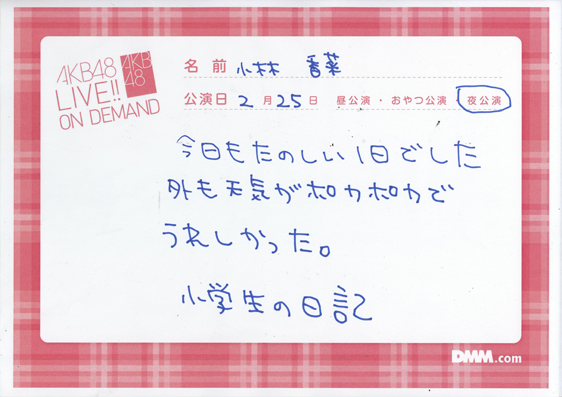 AKB48
LIVE!!
ON DEMAND
AKB
48
名前 小林 香菜
公演日 2月25日 昼公演・おやつ公演・夜公演
今日もたのしい1日でした
外も天気がポカポカで
うれしかった。
小学生の日記
DMM.com